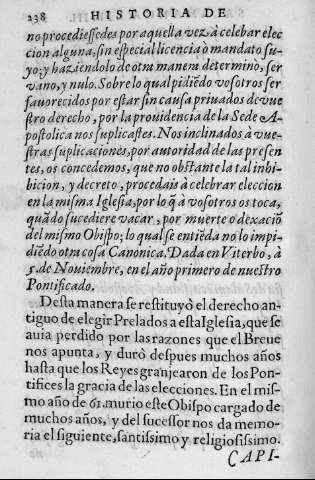 238 HISTORIA DE
no procediessedes por aquella vez à celebar elec
cion alguna, sin especial licencia o mandato su-
yo; y haziendolo de otra manera determino, ser
vano, y nulo. Sobre lo qual pidiẽdo vosotros ser
fauorecidos por estar sin causa priuados de vue
stro derecho, por la prouidencia de la Sede A-
postolica nos suplicastes. Nos inclinados à vue-
stras suplicaciones, por autoridad de las presen
tes, os concedemos, que no obstante la tal inhi-
bicion, y decreto, procedais à celebrar eleccion
en la misma Iglesia, por lo q̃ a vosotros os toca,
quãdo sucediere vacar, por muerte o dexaciõ
del mismo Obispo; lo qual se entiẽda no lo impi-
diẽdo otra cosa Canonica. Dada en Viterbo, à
5. de Nouiembre, en el año primero de nuestro
Pontificado.
Desta manera se restituyò el derecho an-
tiguo de elegir Prelados a esta Iglesia, que se
auia perdido por las razones que el Breue
nos apunta, y durò despues muchos años
hasta que los Reyes granjearon de los Pon-
tifices la gracia de las elecciones. En el mis-
mo año de 61. murio este Obispo cargado de
muchos años, y del sucessor nos da memo-
ria el siguiente, santissimo y religiosissimo.
CAPI-